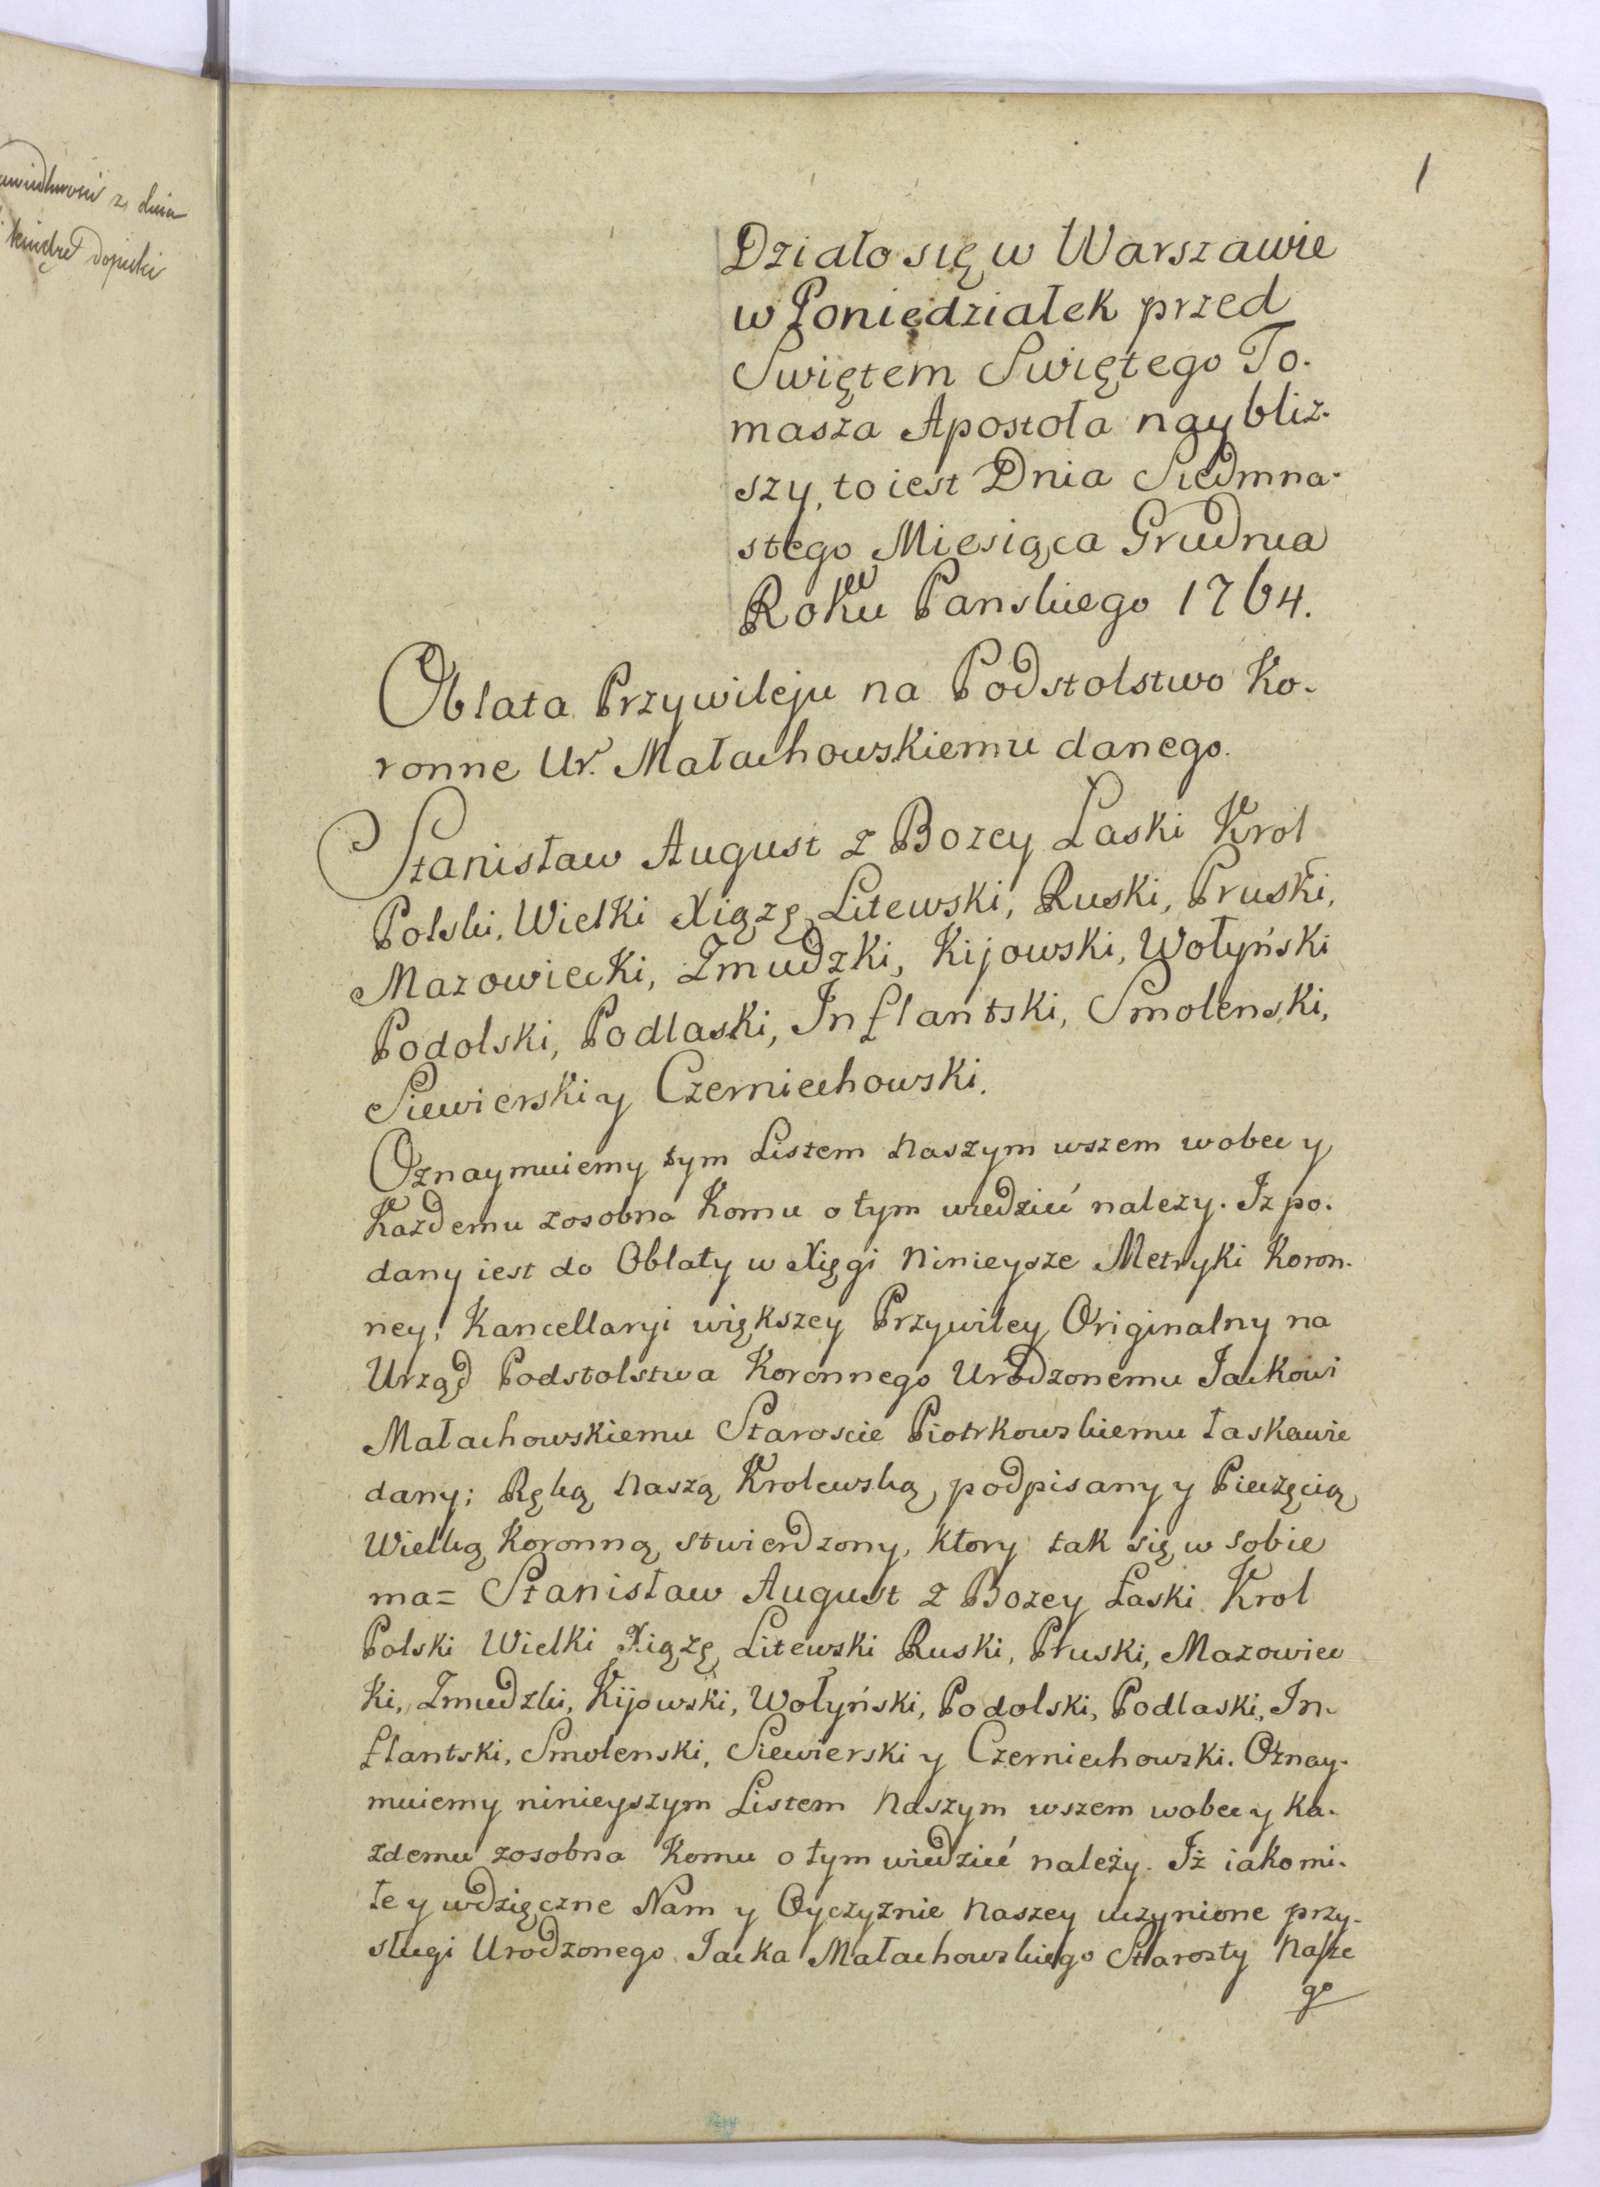 1
Działo się w Warszawie
w Poniedziałek przed
Swiętem Swiętego To-
masza Apostoła naybliz-
szy, to iest Dnia Siedmna-
stego Miesiąca Grudnia
Roku Panskiego 1764.
Oblata Przywileju na Podstolstwo Ko-
ronne Ur. Małachowskiemu danego.
Stanisław August z Bozey Łaski Krol
Polski, Wielki Xiążę Litewski, Ruski, Pruski,
Mazowiecki, Zmudzki, Kijowski, Wołyński
Podolski, Podlaski, Inflantski, Smolenski,
Siewierski y Czerniechowski.
Oznaymuiemy tym Listem Naszym wszem wobec y
Kazdemu zosobna Komu o tym wiedzieć nalezy. Iz po-
dany iest do Oblaty w Xięgi Ninieysze Metryki Koron-
ney, Kancellaryi większey Przywiley Originalny na
Urząd Podstolstwa Koronnego Urodzonemu Jackowi
Małachowskiemu Staroscie Piotrkowskiemu łaskawie
dany; Ręką Naszą Krolewską podpisany y Pieczęcią
Wielką Koronną stwierdzony, ktory tak się w sobie
ma= Stanisław August z Bozey Łaski Krol
Polski Wielki Xiążę Litewski Ruski, Pruski, Mazowiec
ki, Zmudzki, Kijowski, Wołyński, Podolski, Podlaski, In-
flantski, Smolenski, Siewierski y Czerniechowski. Oznay-
muiemy ninieyszym Listem Naszym wszem wobec y Ka-
zdemu zosobna Komu o tym wiedzieć należy. Iż iako mi-
łe y wdzięczne Nam y Oyczyznie Naszey uczynione przy-
sługi Urodzonego Jacka Małachowskiego Starosty Nasze
go
z dnia
dopiski